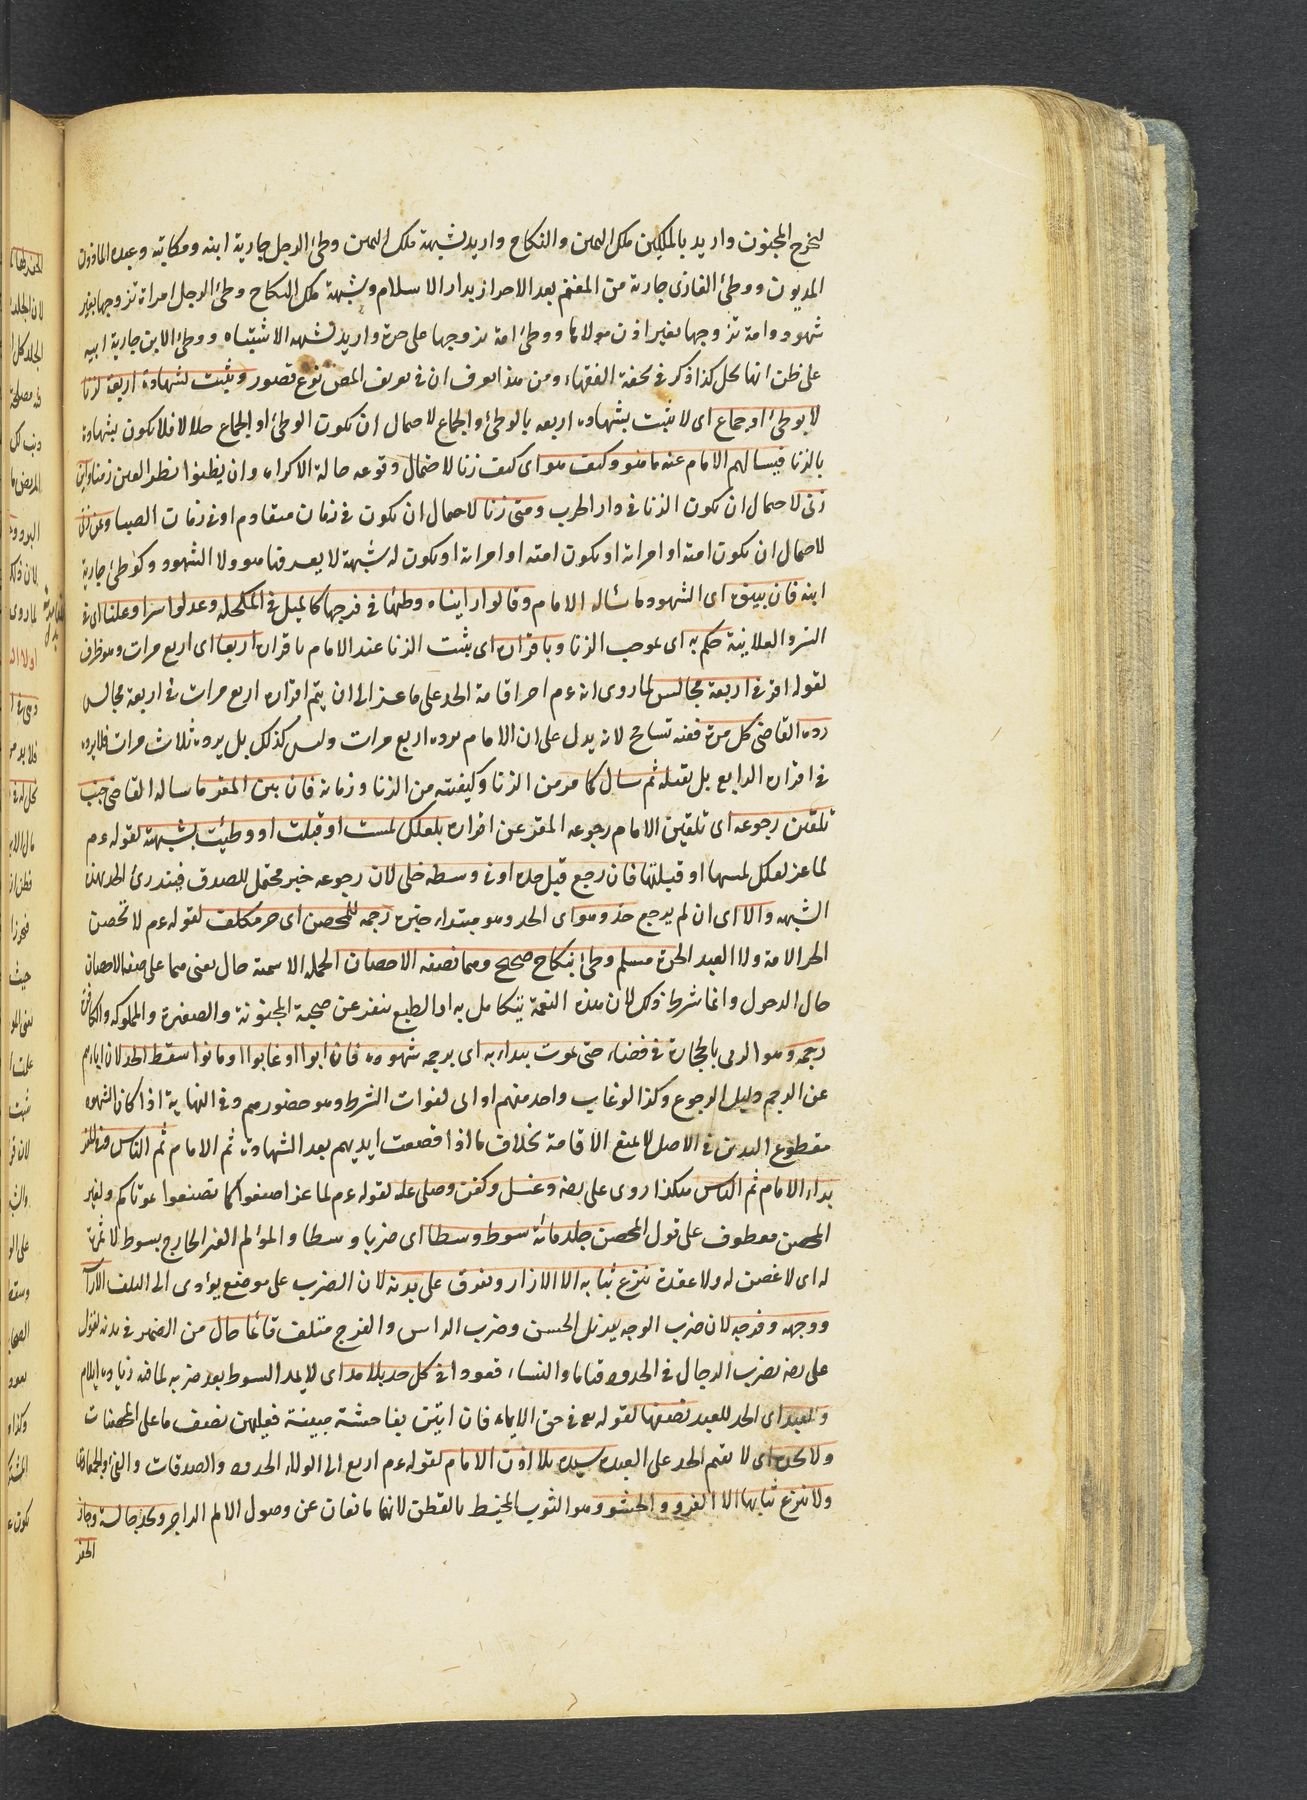 ليخرج المجنون واريد بالملكين ملك اليمين والنكاح واريد بشبهة ملك اليمين وطئ الرجل جارية ابنه ومكاتبه وعبده الماذون
المديون ووطئ الغازى جارية من المغنم بعد الاحراز بدار الاسلام وشبهة ملك النكاح وطئ الرجل امراة تزوجها بغير
شهود وامة تزوجها بغير اذن مولاها ووطئ امة تزوجها على حرة واريد بشبهة الاشتباه ووطئ الابن جارية ابيه
على ظن انها تحل كذا ذكر فى تحفة الفقهاء ومن هذا يعرف ان فى تعريف المص نوع قصور ويثبت بشهادة اربعة لزنا
لا بوطئ او جماع اى لا يثبت بشهادة اربعة بالوطئ والجماع لاحتمال ان يكون الوطئ او الجماع حلالا فلا يكون بشهادة
بالزنا فيسالهم الامام عنه ما هو وكيف هو اى كيف زنا لاحتمال وقوعه حالة الاكراه وان يظنوا نظر العين زنا واين
زنى لاحتمال ان يكون الزنا فى دار الحرب ومتى زنا لاحتمال ان يكون فى زمان متقادم او فى زمان الصبا وبمن زنى
لاحتمال ان يكون امته او امراته او يكون امته او امراته او يكون له شبهة لا يعرفها هو ولا الشهود وكوطئ جارية
ابنه فان بينوه اى الشهود ما ساله الامام وقالوا رايناه وطئها فى فرجها كالميل فى المكحلة وعدلوا سرا وعلنا اى فى
السر والعلانية حكم به اى بموجب الزنا وباقراره اى يثبت الزنا عند الامام باقراره اربعا اى اربع مرات وهو ظرف
لقوله اقر فى اربعة مجالس لما روى انه عم اخر اقامة الحد على ماعز الى ان يتم اقراره اربع مرات فى اربعة مجالس
رده القاضى كل مرة ففيه تسامح لانه يدل على ان الامام يرده اربع مرات وليس كذلك بل يرده ثلاث مرات فلا يرده
فى اقراره الرابع بل يقبله ثم سال كما مر من الزنا وكيفيته من الزنا وزمانه فان بين المقر ما ساله القاضى حسب
تلقين رجوعه اى تلقين الامام رجوعه المقر عن اقراره بلعلك لمست او قبلت او وطيئت بشبهة لقوله عم
لماعز لعلك لمسها او قبلتها فان رجع قبل حده او فى وسطه خلى لان رجوعه خبر محتمل للصدق فيندرئ الحد بهذه
الشبهة والا اى ان لم يرجع حد وهو اى الحد وهو مبتداء خبره رجمه للمحصن اى حر مكلف لقوله عم لا تحصن
الحر الامة ولا العبد الحرة مسلم وطئ بنكاح صحيح وهما بصفة الاحصان الجملة الاسمية حال يعنى هما على صفة الاحصان
حال الدخول وانما شرط ذلك لان هذه النعمة يتكامل به اذ الطبع ينفر عن صحبة المجنونة والصغيرة والمملوكة والكافرة
رجمه وهو الرمى بالحجارة فى فضاء حتى يموت يبداء به اى برجمه شهوده فان ابوا او غابوا او ماتوا سقط الحد لان اباءهم
عن الرجم دليل الرجوع وكذا لو غاب واحد منهم او ابى لفوات الشرط وهو حضورهم وفى النهاية اذا كان الشهود
مقطوع اليدين فى الاصل لا يمنع الاقامة بخلاف ما اذا قطعت ايديهم بعد الشهادة ثم الامام ثم الناس وفى المقر
يبداء الامام ثم الناس هكذا روى على رضه وغسل وكفن وصلى عليه لقوله عم لماعز اصنعوا كما تصنعوا بموتاكم ولغير
المحصن معطوف على قول للمحصن جلد مائة سوط وسطا اى ضربا وسطا والمؤلم الغير الجارح بسوط لا ثمرة
له اى لا غصن له ولا عقدة ينزع ثيابه الا الازار ويفرق على بدنه لان الضرب على موضع يؤدى الى التلف الا راسه
ووجهه وفرجه لان ضرب الوجه يزيل الحسن وضرب الراس والفرج متلف قائما حال من الضمير فى بدنه لقول
على رضه يضرب الرجال فى الحدود قياما والنساء قعودا فى كل حد بلا مد اى لا يمد السوط بعد ضربه لما فيه زيادة ايلام
وللعبد اى الحد للعبد نصفها لقوله تع فى حق الاماء فان اتين بفاحشة مبينة فعليهن نصف ما على المحصنات
ولا يحده اى لا يقيم الحد على العبد سيده بلا اذن الامام لقوله عم اربع الى الولاة الحدود والصدقات والفئ والجمعات
ولا ينزع ثيابها الا الفرو والحشو وهو الثوب المخيط بالقطن لانهما مانعان عن وصول الالم الزاجر وتحد جالسة وجاز
الحفر